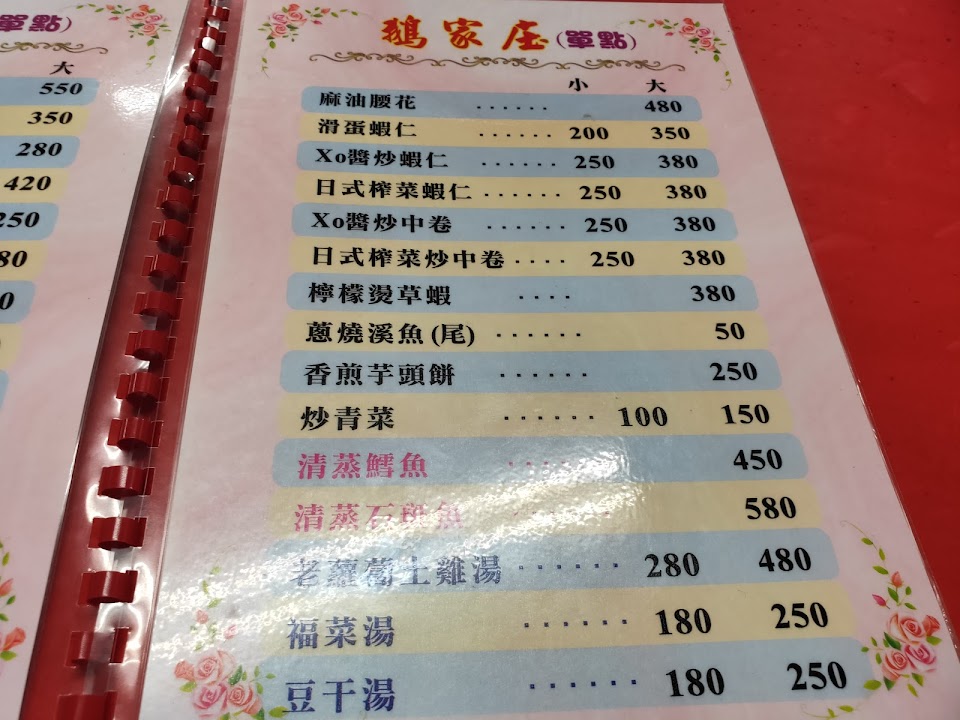 單點)
大
550
350
280
420
250
80
0
鵝家庄(單點)
小 大
麻油腰花 ...... 480
滑蛋蝦仁 ...... 200 350
Xo醬炒蝦仁 ...... 250 380
日式榨菜蝦仁 ...... 250 380
Xo醬炒中卷 ...... 250 380
日式榨菜炒中卷 .... 250 380
檸檬燙草蝦 .... 380
蔥燒溪魚(尾) ...... 50
香煎芋頭餅 ...... 250
炒青菜 ...... 100 150
清蒸鱈魚 ...... 450
清蒸石斑魚 ...... 580
老蘿蔔土雞湯 ...... 280 480
福菜湯 ...... 180 250
豆干湯 ...... 180 250